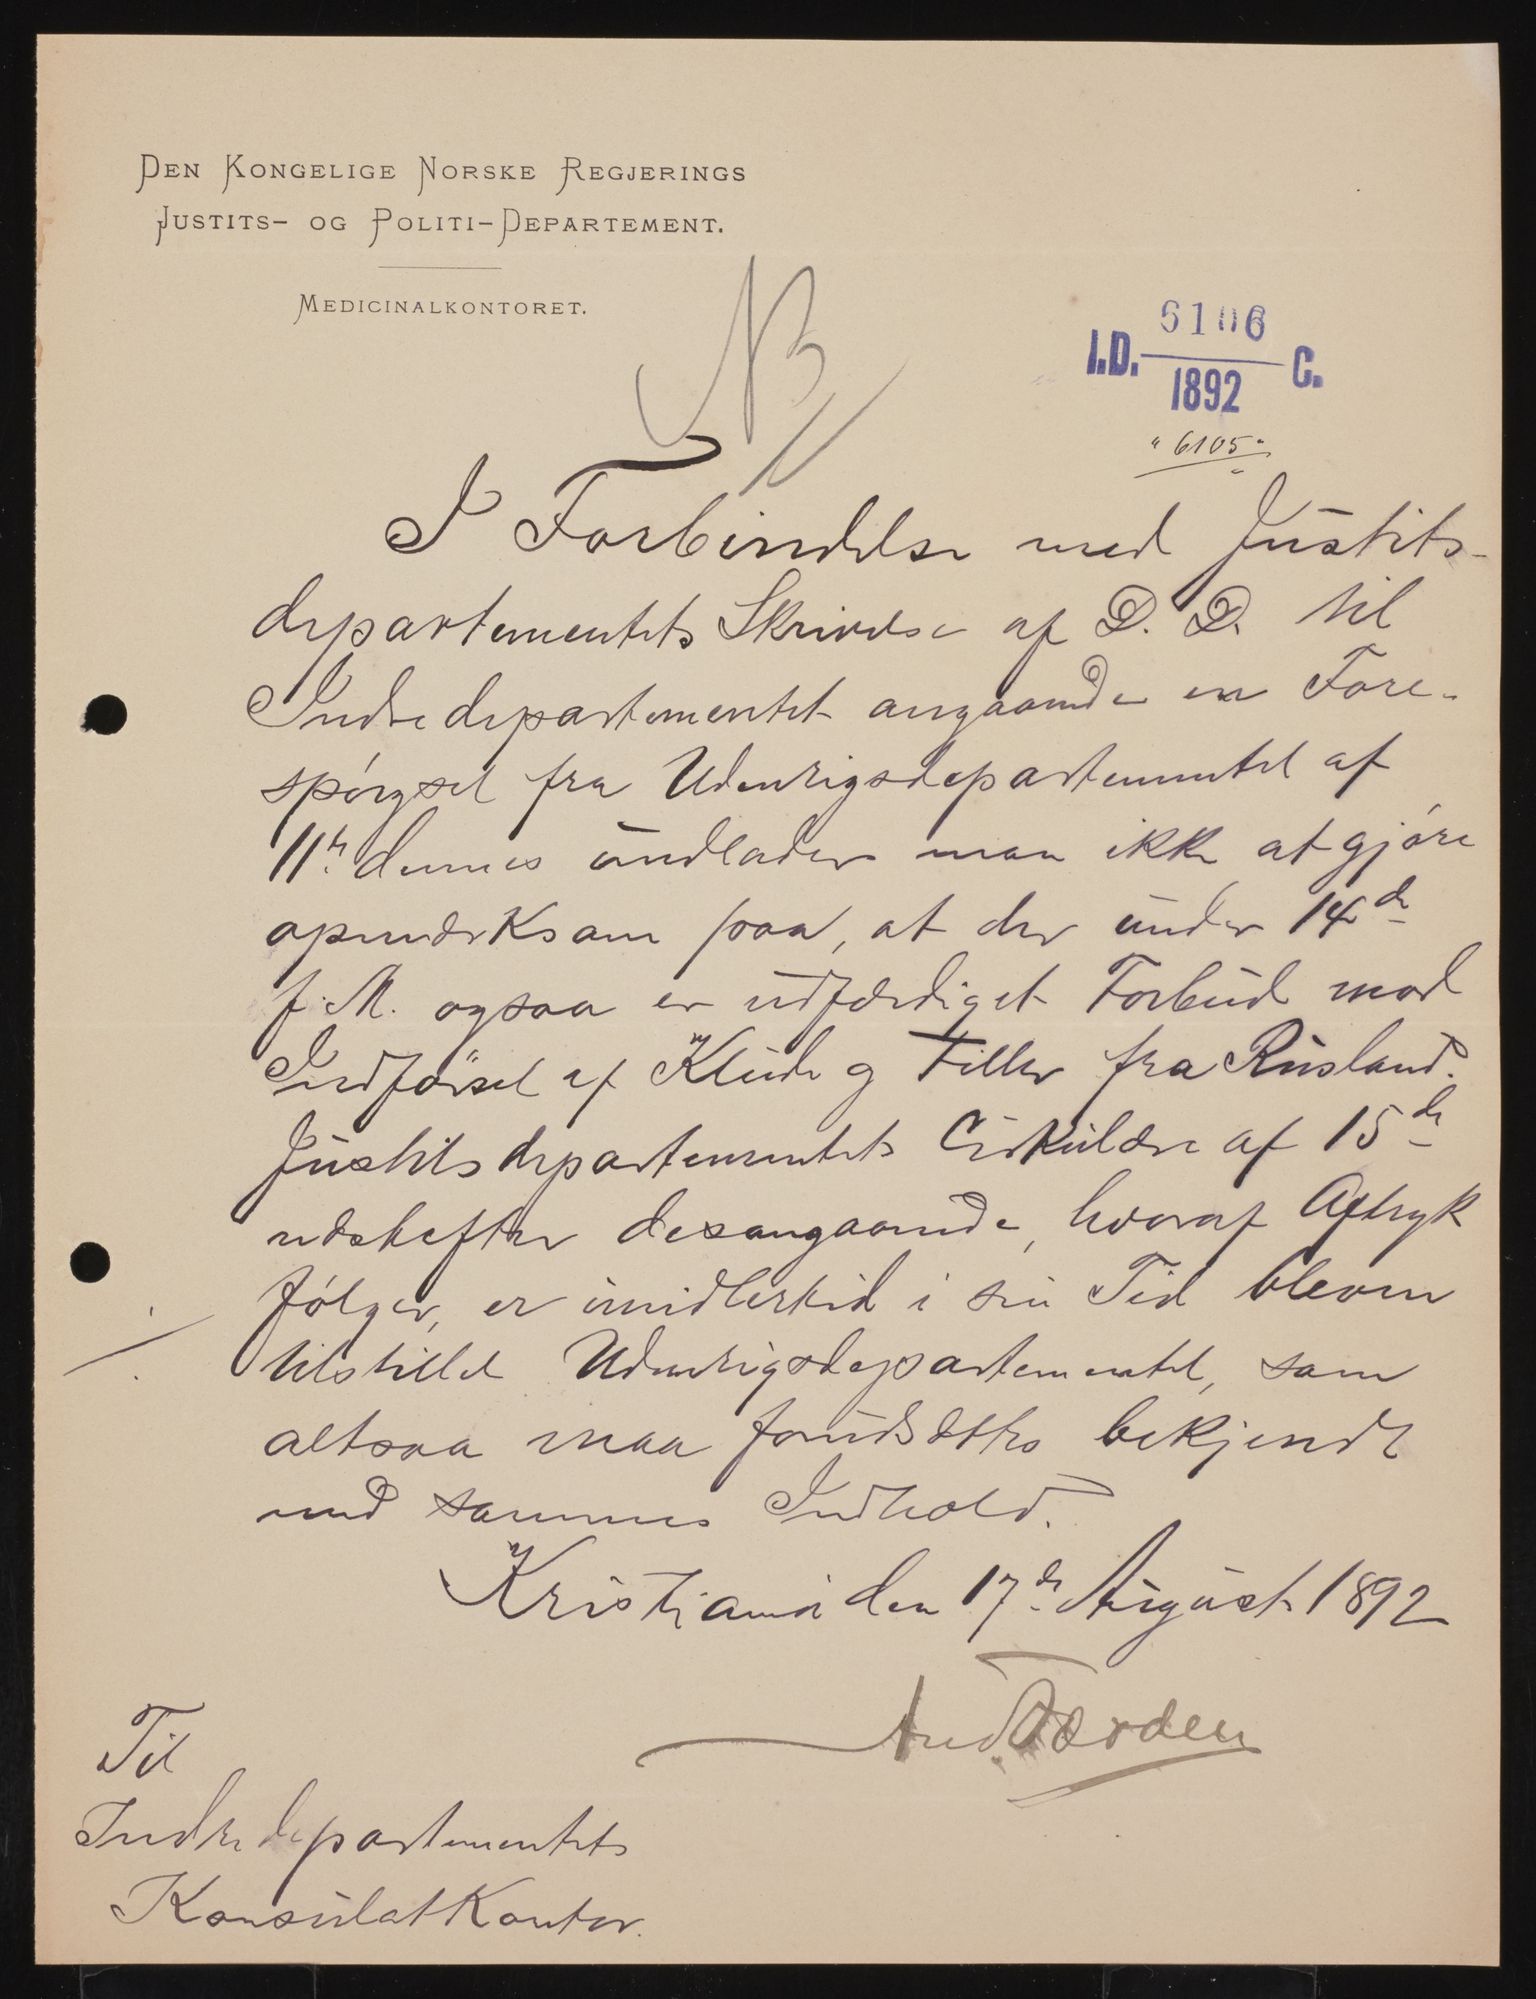 DEN KONGELIGE NORSKE REGJERINGS
JUSTITS- OG POLITI-DEPARTEMENT.
MEDICINALKONTORET.
NB
6106
I.D. C.
1892
"6105"
I Forbindelse med Justits-
departementets Skrivelse af D. D. til
Indredepartementet angaaende en Fore-
spørgsel fra Udenrigsdepartementet af
11te dennes undlader man ikke at gjøre
opmærksom paa, at der under 14de
f. M. ogsaa er udfærdiget Forbud mod
Indførsel af Klude og Filler fra Rusland.
Justitsdepartementets Cirkulære af 15de
næstefter desangaaende, hvoraf Aftryk
følger, er imidlertid i sin Tid bleven
tilstillet Udenrigsdepartementet, som
altsaa maa forudsættes bekjendt
med sammes Indhold.
Kristiania den 17de August 1892
And Færden
Til
Indredepartementets
Konsulatkontor.